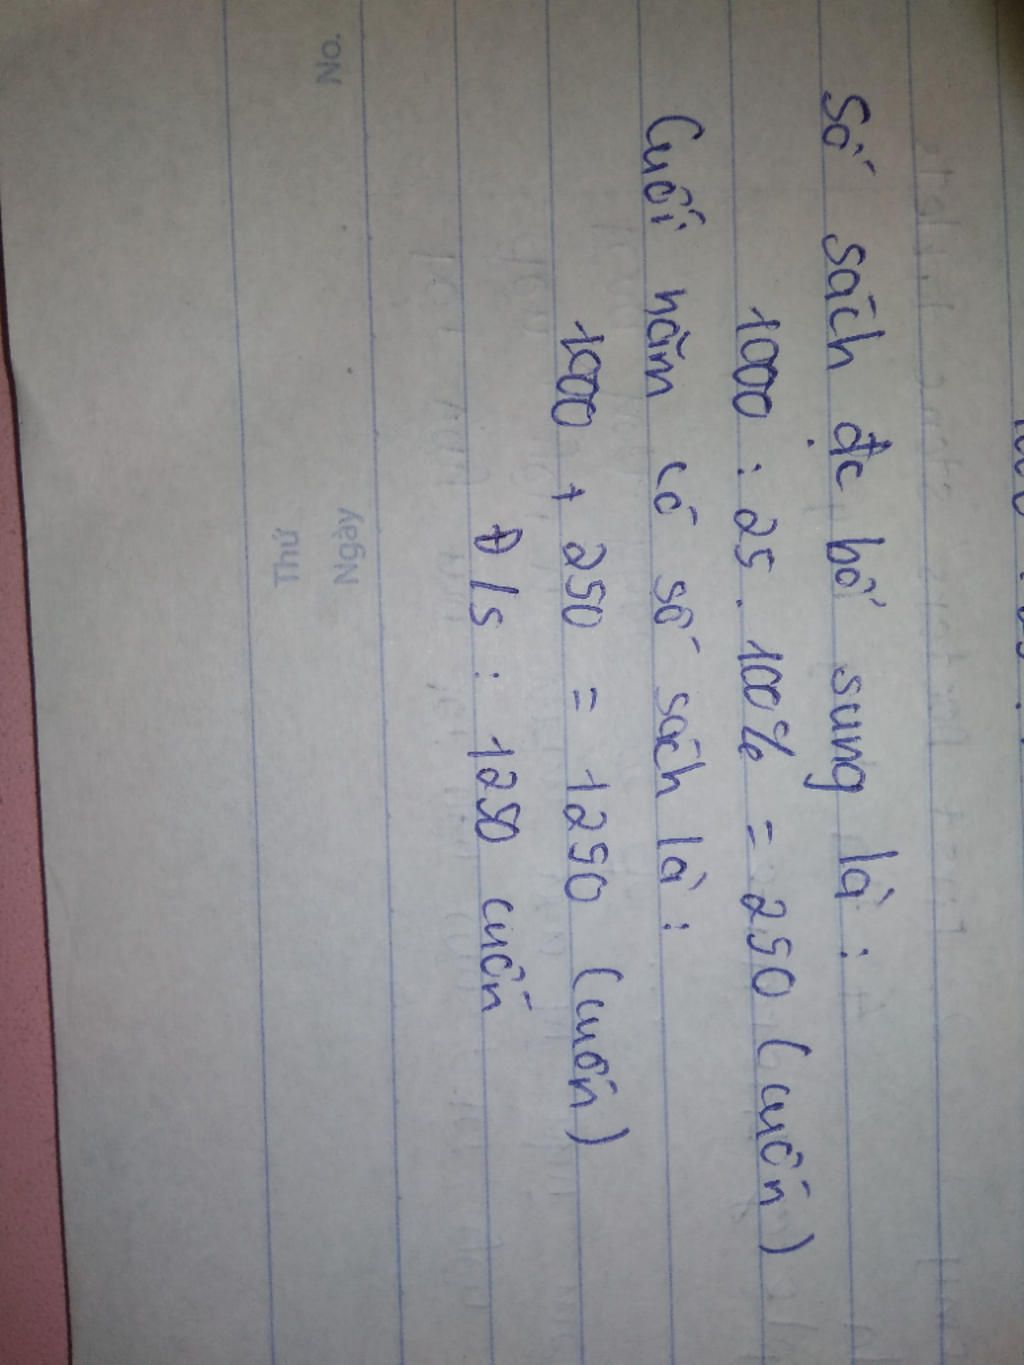 Số sách đc bổ sung là :
1000 : 25 . 100% = 250 (cuốn)
Cuối năm có số sách là :
1000 + 250 = 1250 (cuốn)
Đ/s : 1250 cuốn
Ngày
Thứ
No.